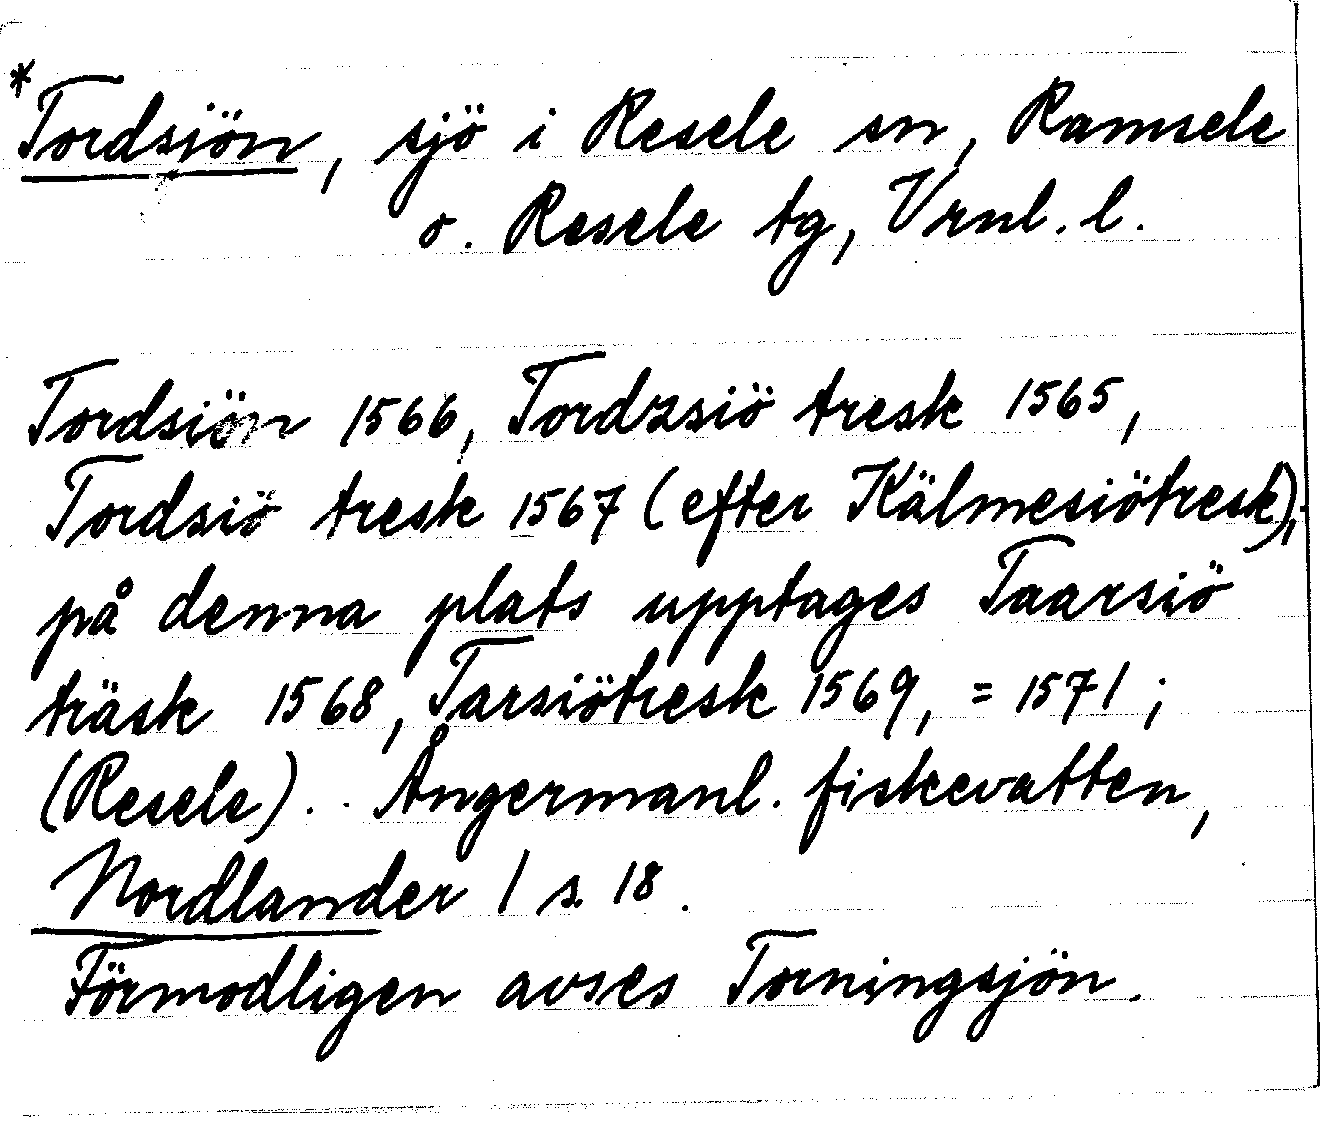 *Tordsiön, sjö i Resele sn, Ramsele
o. Resele tg, Vrnl. l.
Tordsiön 1566, Tordzsiö tresk 1565,
Tordsiö tresk 1567 (efter Kälmesiötresk);
på denna plats upptages Taarsiö
träsk 1568, Tarsiötresk 1569, = 1571;
(Resele). Ångermanl. fiskevatten,
Nordlander 1 s. 18.
Förmodligen avses Torningsjön.